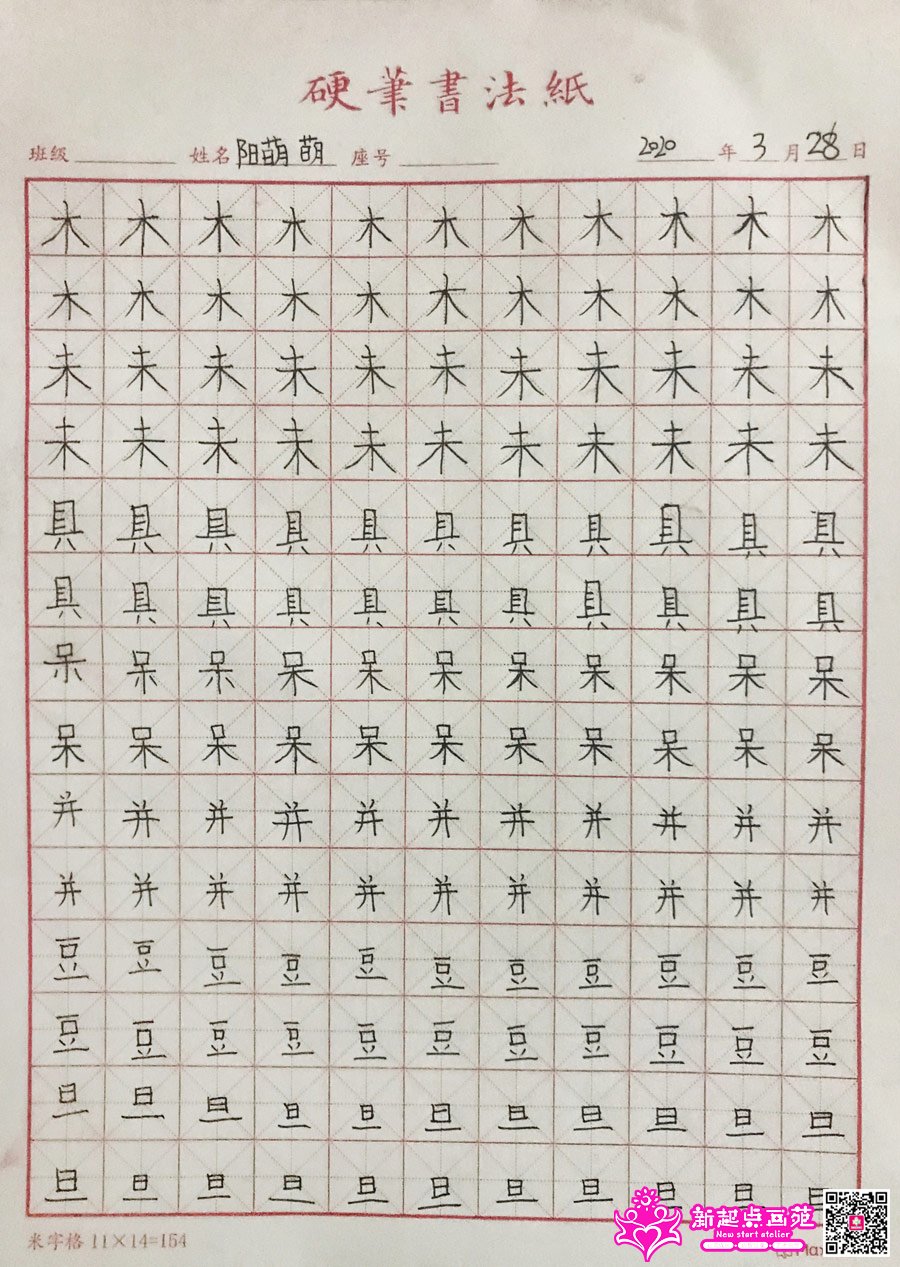 硬筆書法紙
班级 姓名 阳萌萌 座号 2020 年 3 月 28 日
木 木 木 木 木 木 木 木 木 木 木
木 木 木 木 木 木 木 木 木 木 木
未 未 未 未 未 未 未 未 未 未 未
未 未 未 未 未 未 未 未 未 未 未
具 具 具 具 具 具 具 具 具 具 具
具 具 具 具 具 具 具 具 具 具 具
呆 呆 呆 呆 呆 呆 呆 呆 呆 呆 呆
呆 呆 呆 呆 呆 呆 呆 呆 呆 呆 呆
并 并 并 并 并 并 并 并 并 并 并
并 并 并 并 并 并 并 并 并 并 并
豆 豆 豆 豆 豆 豆 豆 豆 豆 豆 豆
豆 豆 豆 豆 豆 豆 豆 豆 豆 豆 豆
旦 旦 旦 旦 旦 旦 旦 旦 旦 旦 旦
旦 旦 旦 旦 旦 旦 旦 旦 旦 旦 旦
米字格 11×14=154
新起点画苑
New start atelier